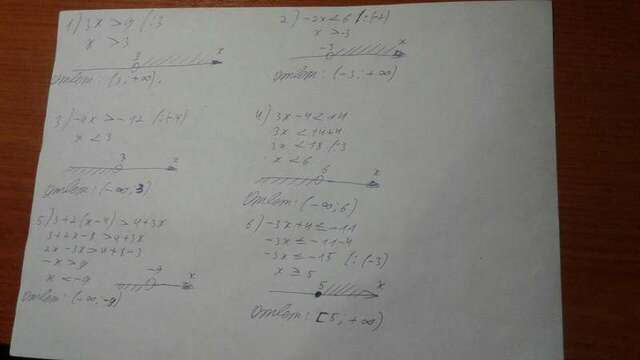 1) 3x > 9 |:3
x > 3
3 x
Ответ: (3; +∞).
2) -2x < 6 |:(-2)
x > -3
-3 x
Ответ: (-3; +∞)
3) -4x > -12 |:(-4)
x < 3
3 x
Ответ: (-∞; 3)
4) 3x - 4 < 14
3x < 14+4
3x < 18 |:3
x < 6
6 x
Ответ: (-∞; 6)
5) 3+2(x-4) > 4+3x
3+2x-8 > 4+3x
2x-3x > 4+8-3
-x > 9
x < -9
-9 x
Ответ: (-∞; -9)
6) -3x+4 ≤ -11
-3x ≤ -11-4
-3x ≤ -15 |:(-3)
x ≥ 5
5 x
Ответ: [5; +∞)